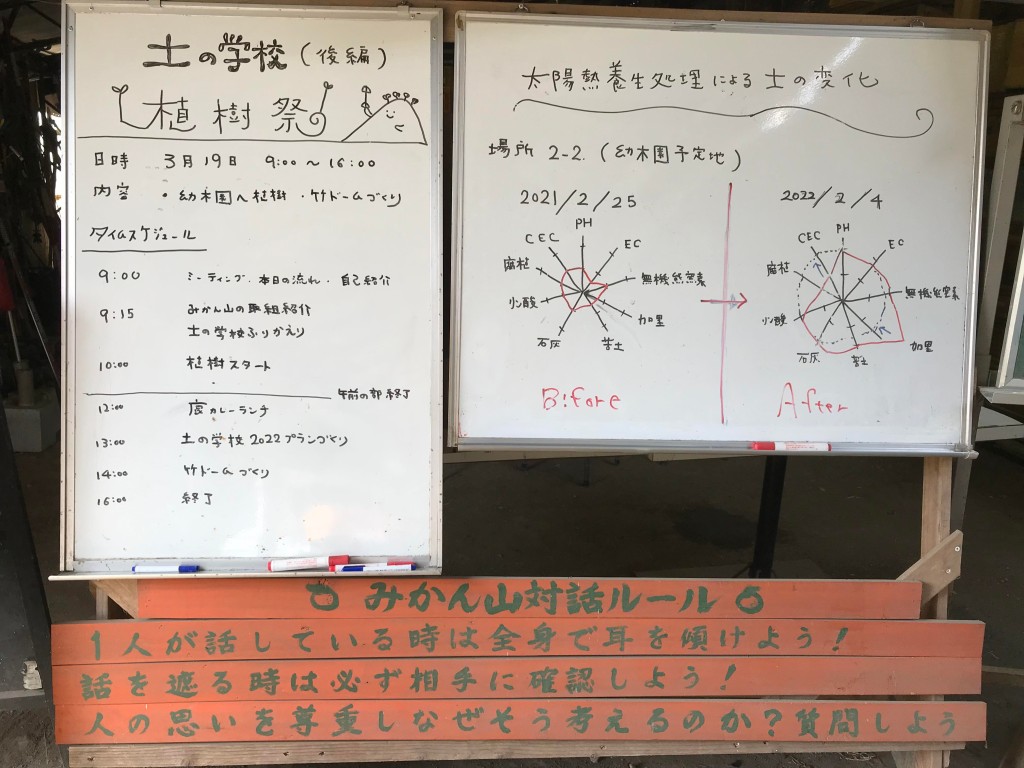 土の学校(後編)
植樹祭
日時 3月19日 9:00～16:00
内容 ・幼木園へ植樹 ・竹ドームづくり
タイムスケジュール
9:00 ミーティング・本日の流れ・自己紹介
9:15 みかん山の取組紹介
土の学校ふりかえり
10:00 植樹スタート
午前の部終了
12:00 鹿カレーランチ
13:00 土の学校2022プランづくり
14:00 竹ドームづくり
16:00 終了
太陽熱養生処理による土の変化
場所 2-2.(幼木園予定地)
2021/2/25
PH
EC
無機態窒素
加里
苦土
石灰
リン酸
腐植
CEC
Before
2022/2/4
PH
EC
無機態窒素
加里
苦土
石灰
リン酸
腐植
CEC
After
みかん山対話ルール
1人が話している時は全身で耳を傾けよう!
話を遮る時は必ず相手に確認しよう!
人の思いを尊重しなぜそう考えるのか?質問しよう